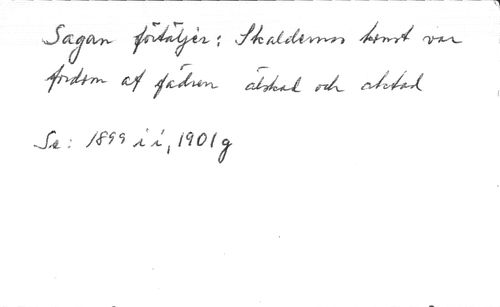 Sagan förtäljer: Skaldernas konst var
fordom af fädren älskad och aktad
Se: 1899 i i, 1901 g